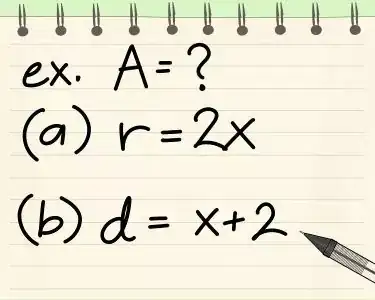 ex. A = ?
(a) r = 2x
(b) d = x+2